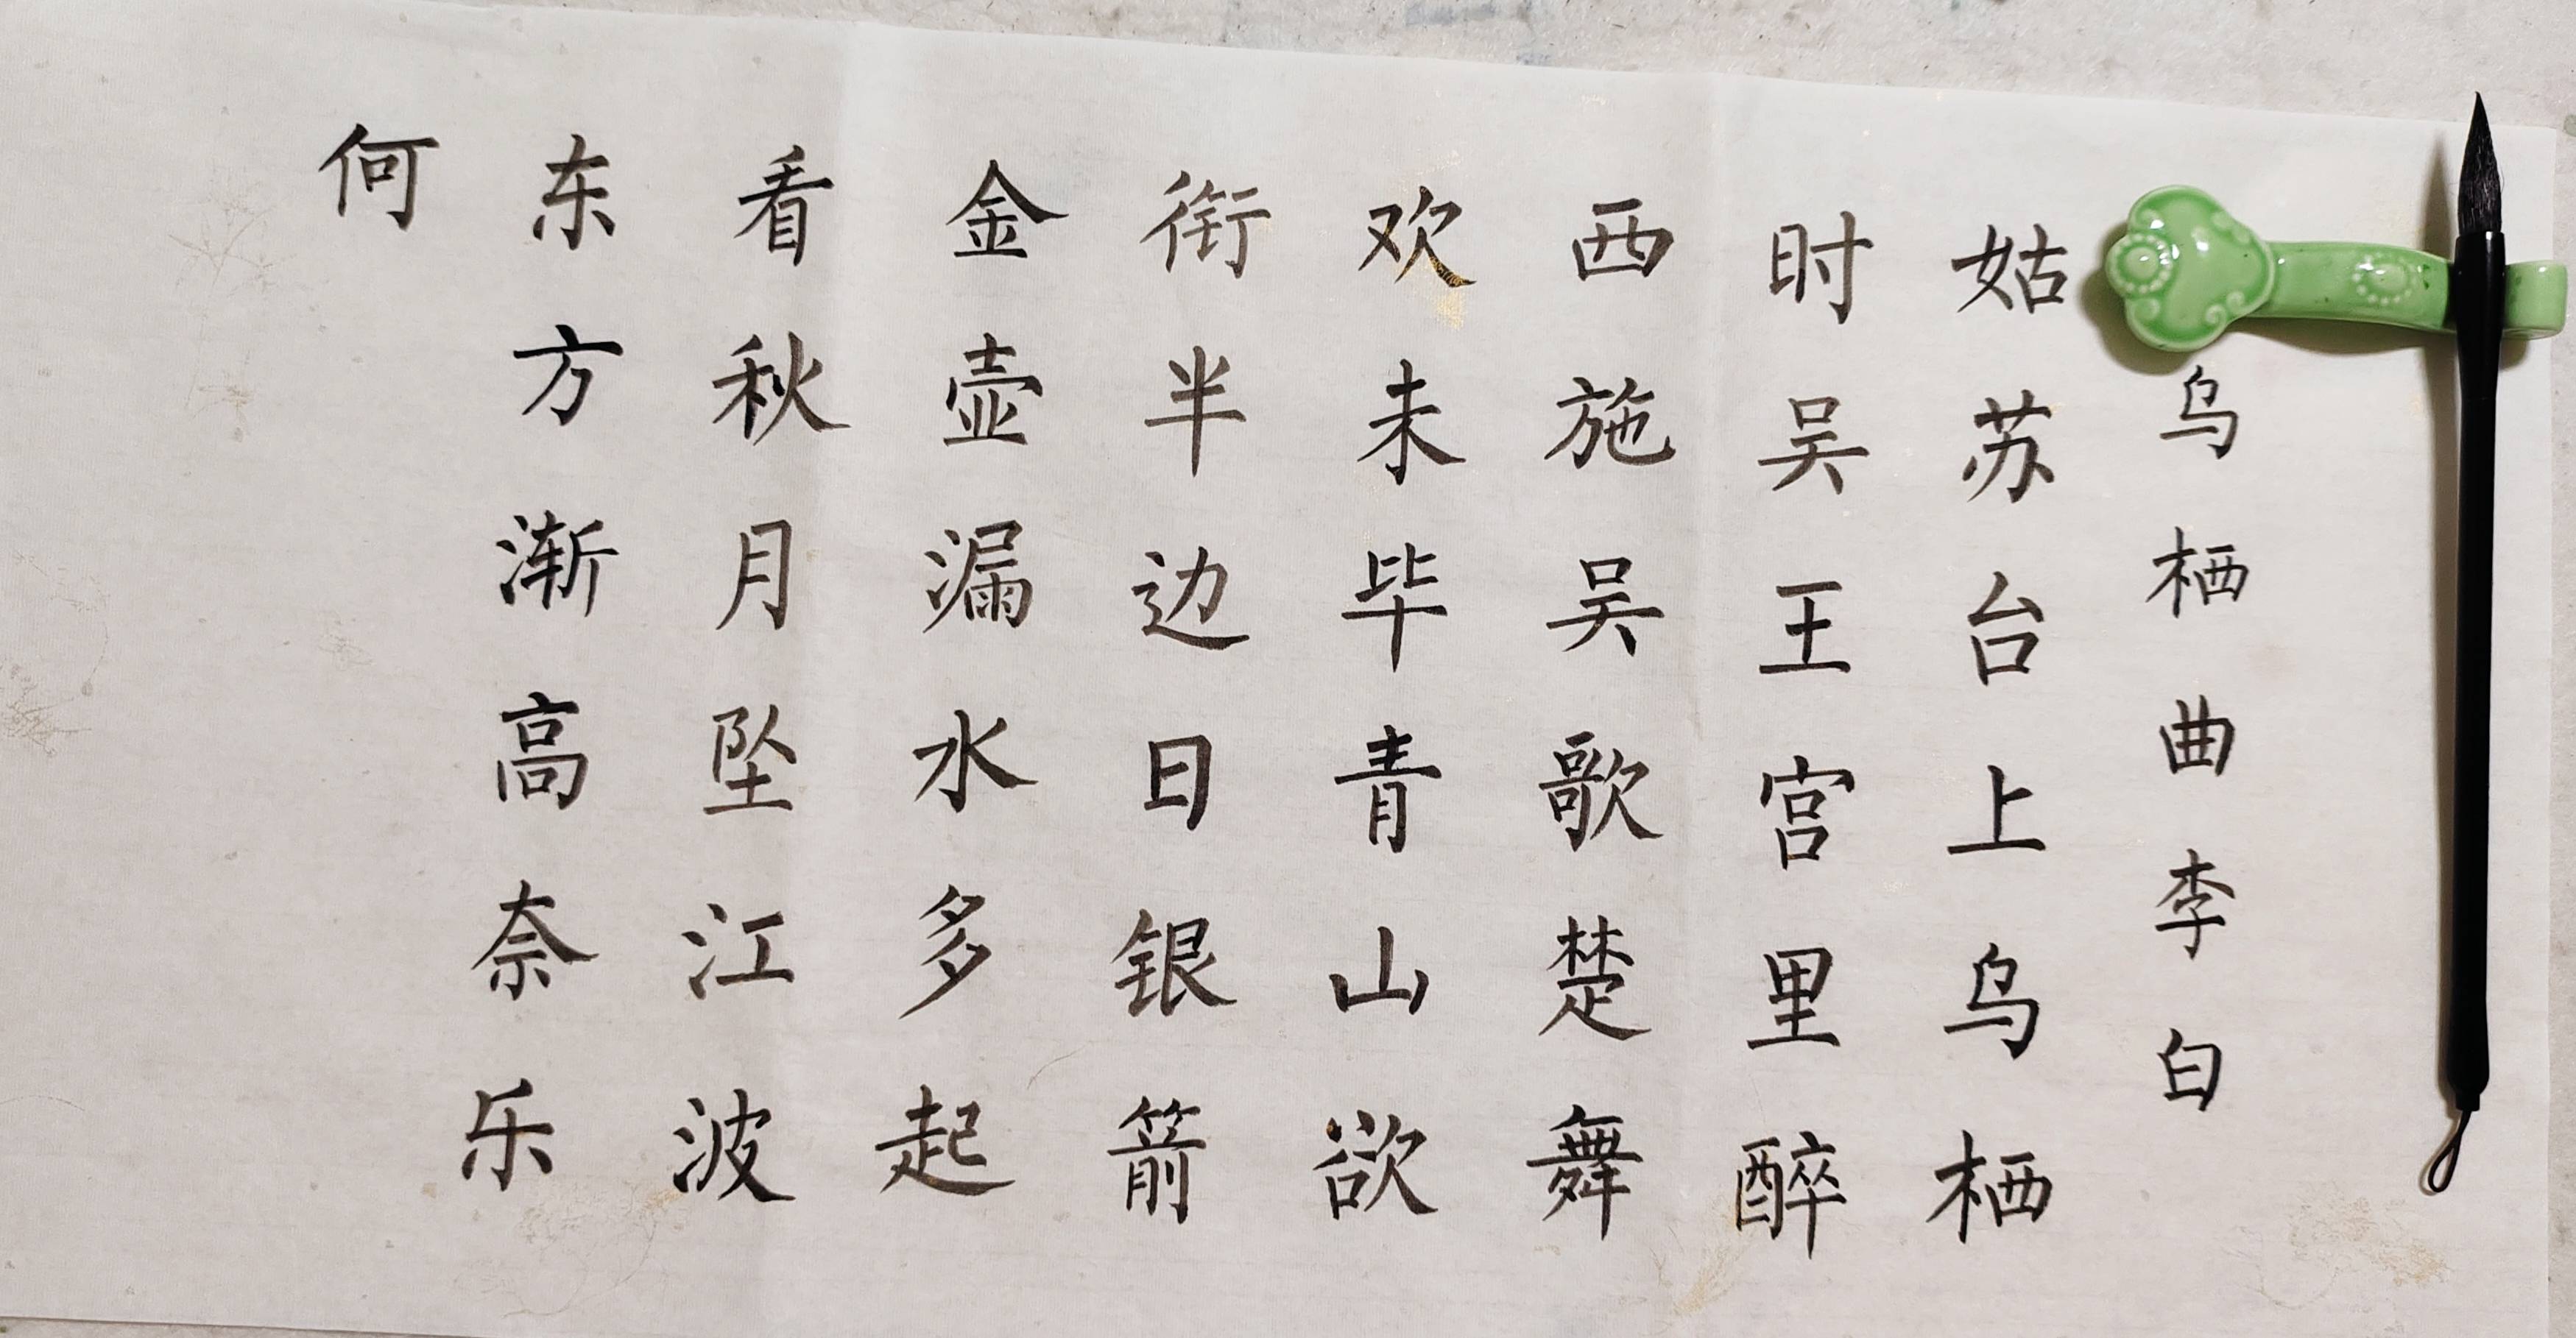 乌栖曲李白
姑苏台上乌栖
时吴王宫里醉
西施吴歌楚舞
欢未毕青山欲
衔半边日银箭
金壶漏水多起
看秋月坠江波
东方渐高奈乐
何